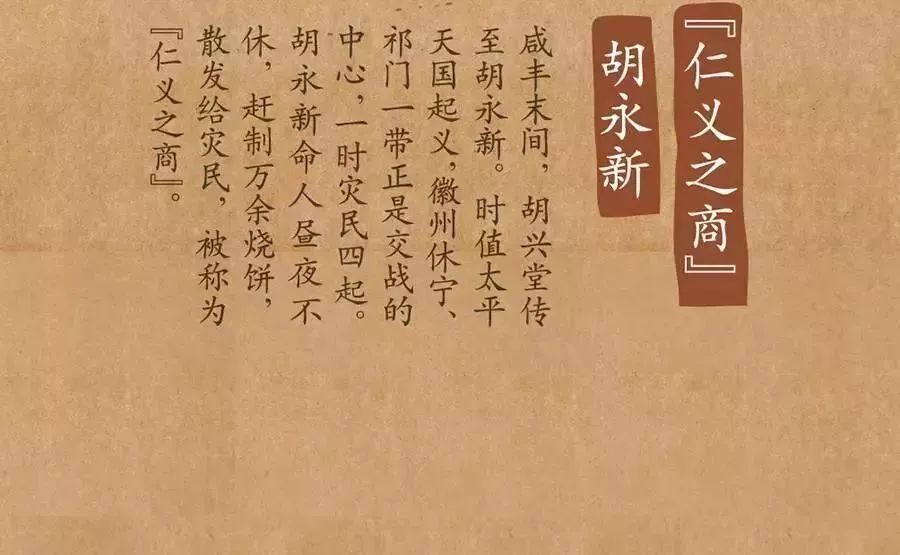 『仁义之商』
胡永新
咸丰末间，胡兴堂传
至胡永新。时值太平
天国起义，徽州休宁、
祁门一带正是交战的
中心，一时灾民四起。
胡永新命人昼夜不
休，赶制万余烧饼，
散发给灾民，被称为
『仁义之商』。